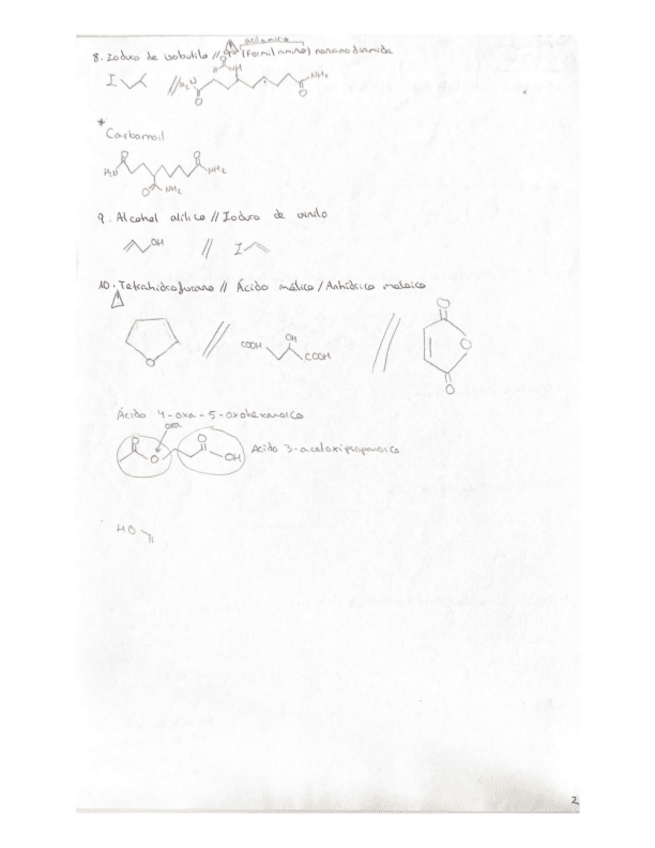 acilamino
8. Ioduro de isobutilo // (Formilamino) nonanodiamida
I // H₂N O NH NH₂ O
* Carbamoil
O H₂N O NH₂
O NH₂
9. Alcohol alílico // Ioduro de vinilo
OH // I
10. Tetrahidrofurano // Ácido málico / Anhídrico maleico
O // COOH OH COOH // O O O
Ácido 4-oxa-5-oxohexanoico
oxa
O O O OH Acido 3-acetoxipropanoico
HO
2